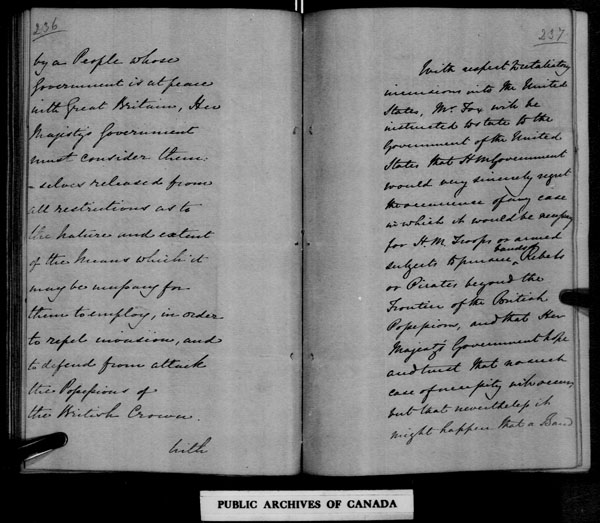 236
by a People whose
Government is at peace
with Great Britain, Her
Majesty's Government
must consider them
- selves released from
all restrictions as to
the nature and extent
of the Means which it
may be necessary for
them to employ, in order
to repel invasion, and
to defend from attack
the Possessions of
the British Crown.
With
237
With respect to retaliatory
incursions into the United
States, Mr. Fox will be
instructed to state to the
Government of the United
States that H M Government
would very sincerely regret
the occurrence of any case
in which it would be necessary
for H. M. Troops or armed
subjects to pursue bands of Rebels
or Pirates beyond the
Frontier of the British
Possessions, and that Her
Majesty's Government hope
and trust that no such
case of necessity will occur,
but that nevertheless it
might happen that a Band
PUBLIC ARCHIVES OF CANADA